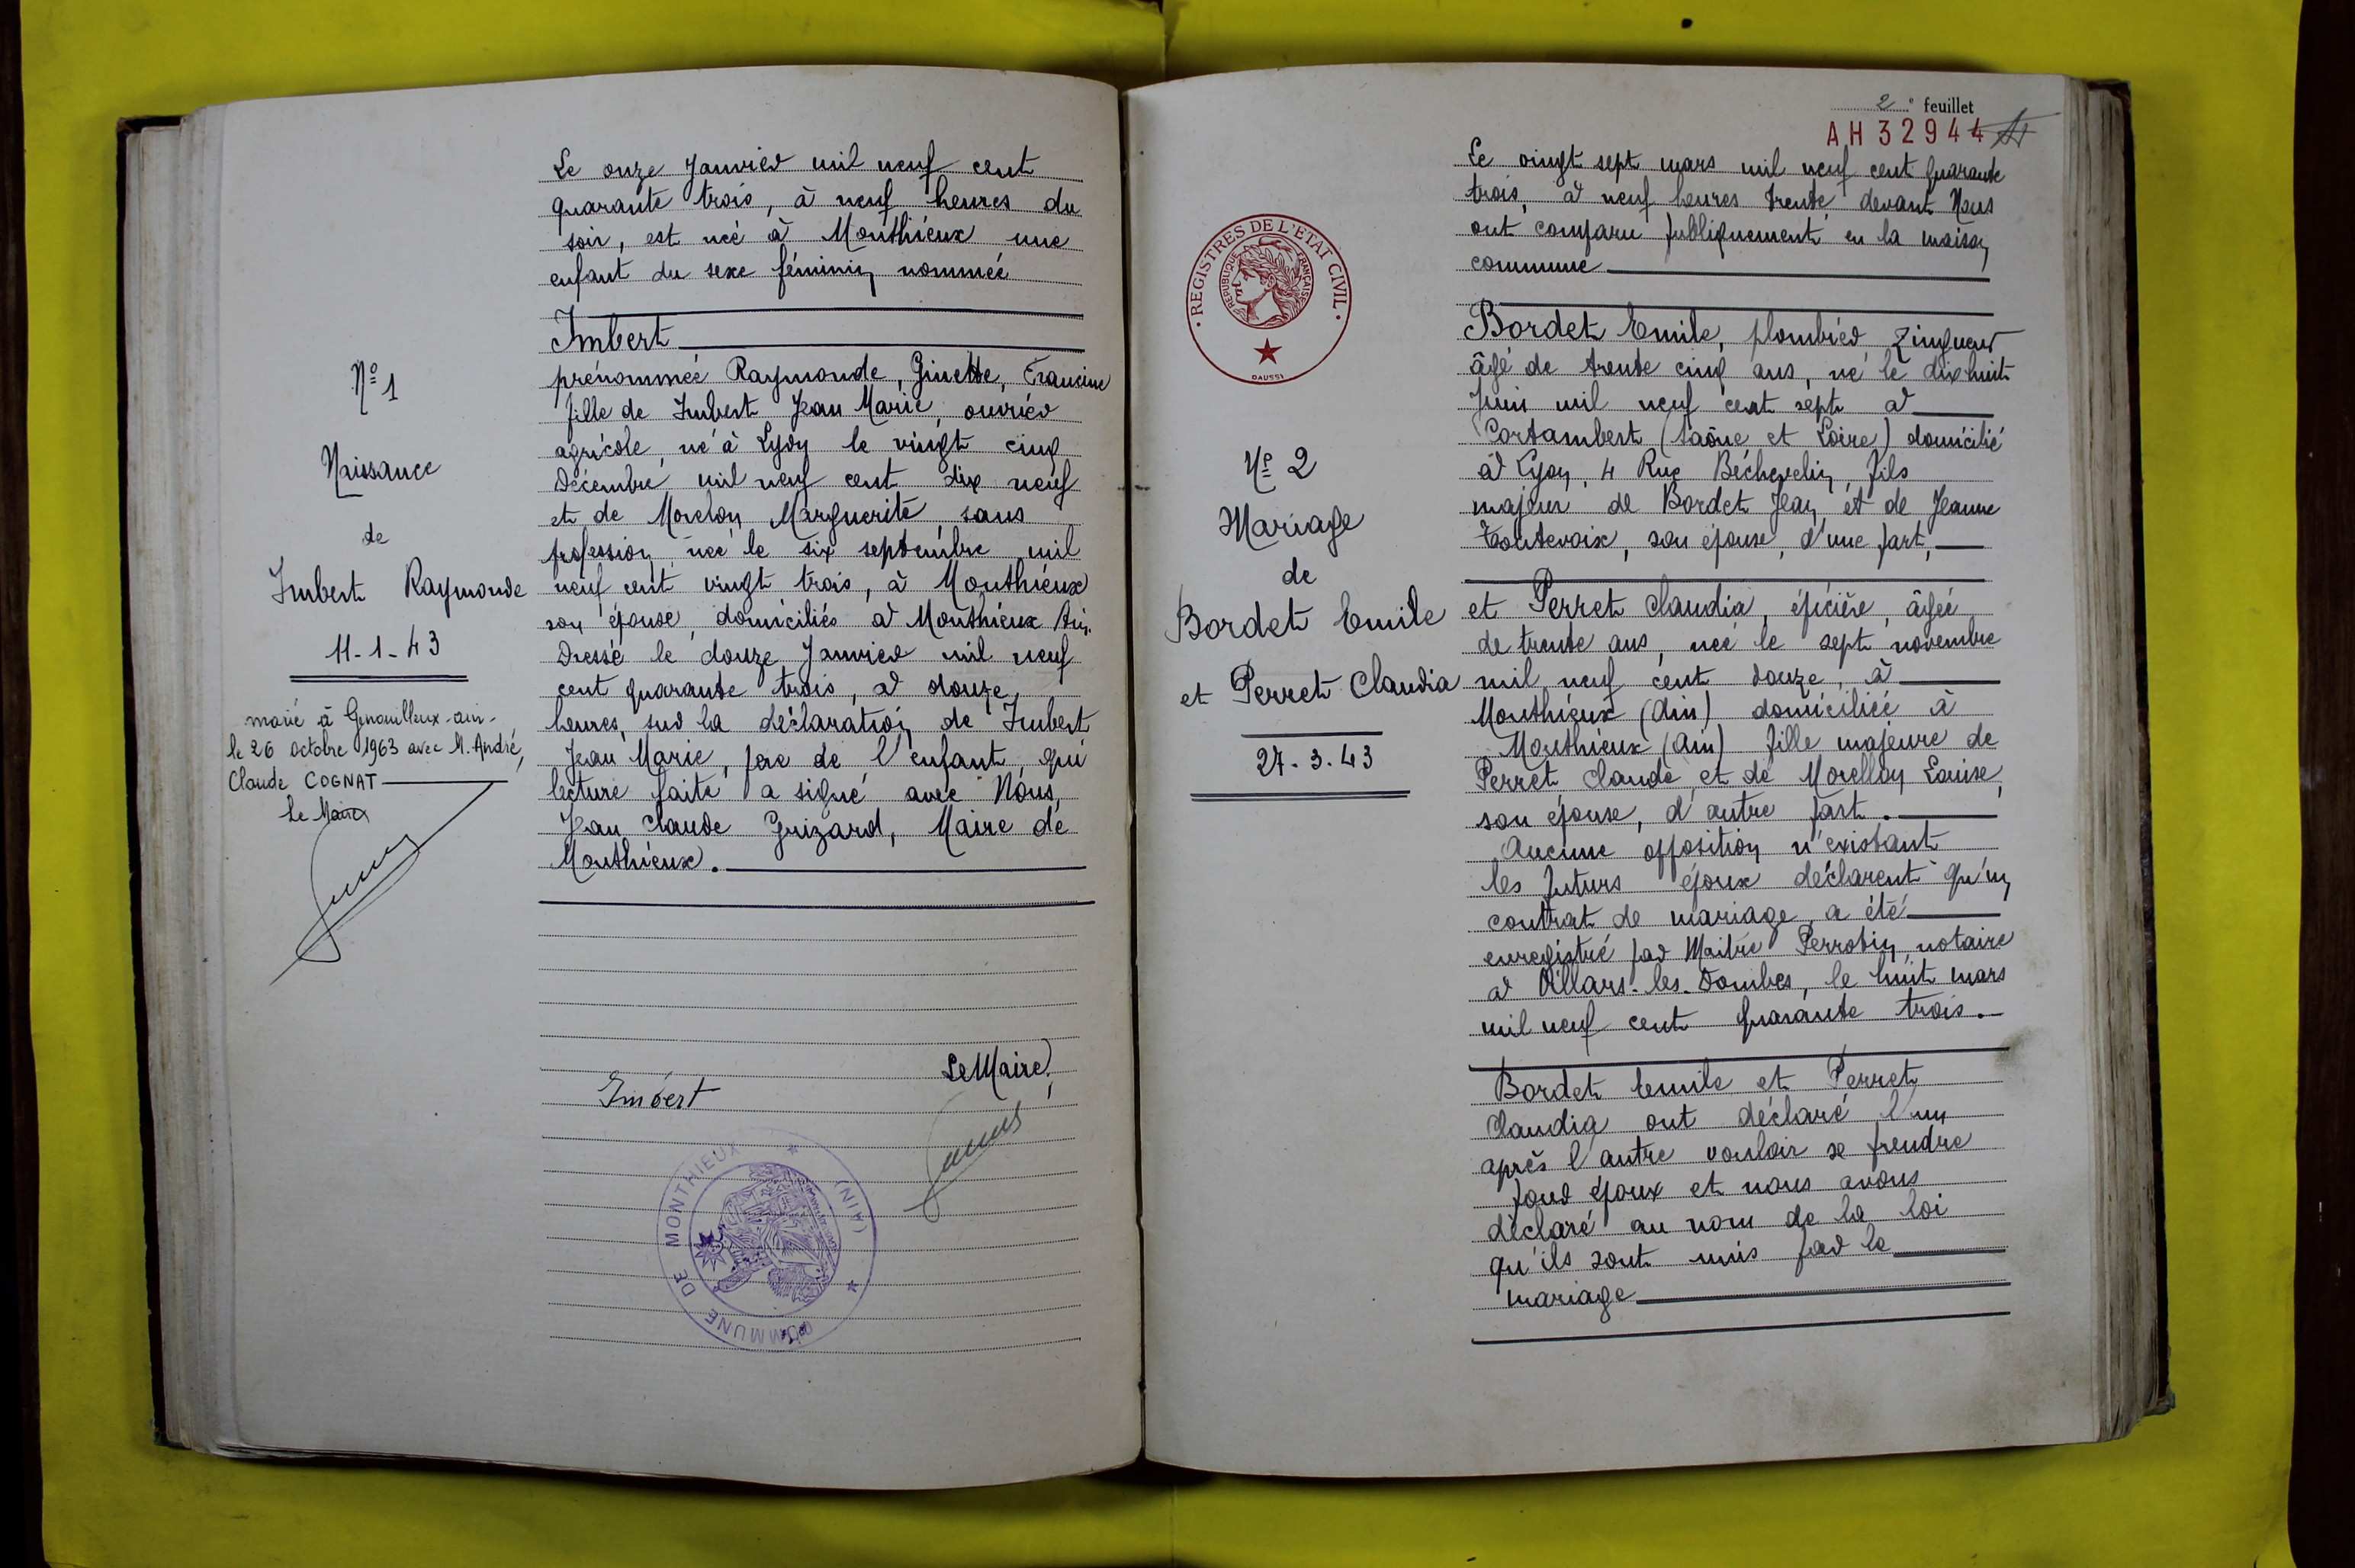 Le onze Janvier mil neuf cent
quarante trois, à neuf heures du
soir, est née à Monthieux une
enfant du sexe féminin nommée
Imbert
prénommée Raymonde, Ginette, Francine
fille de Imbert Jean Marie, ouvrier
agricole, né à Lyon le vingt cinq
Décembre mil neuf cent dix neuf
et de Morelon Marguerite, sans
profession, née le six septembre mil
neuf cent vingt trois, à Monthieux
son épouse, domiciliés à Monthieux Ain.
Dressé le douze Janvier mil neuf
cent quarante trois, à douze
heures, sur la déclaration de Imbert
Jean Marie, père de l'enfant, qui
lecture faite a signé avec Nous,
Jean Claude Grizard, Maire de
Monthieux.
Le Maire,
Imbert
COMMUNE DE MONTHIEUX (AIN)
N° 1
Naissance
de
Imbert Raymonde
11-1-43
marié à Genouilleux-ain-
le 26 octobre 1963 avec M. André,
Claude COGNAT
Le Maire
2e feuillet
AH 32944
REGISTRES DE L'ÉTAT CIVIL
RÉPUBLIQUE FRANÇAISE
DAUSSI
N° 2
Mariage
de
Bordet Emile
et Perret Claudia
27-3-43
Le vingt sept mars mil neuf cent quarante
trois, à neuf heures trente devant Nous
ont comparu publiquement en la maison
commune
Bordet Emile, plombier zingueur
âgé de trente cinq ans, né le dix huit
Juin mil neuf cent sept à
Cortambert (Saône et Loire) domicilié
à Lyon, 4 Rue Béchevelin, fils
majeur de Bordet Jean et de Jeanne
Toutevoix, son épouse, d'une part,
et Perret Claudia, épicière, âgée
de trente ans, née le sept novembre
mil neuf cent douze, à
Monthieux (Ain) domiciliée à
Monthieux (Ain) fille majeure de
Perret Claude et de Morellon Louise,
son épouse, d'autre part.
Aucune opposition n'existant
les futurs époux déclarent qu'un
contrat de mariage a été
enregistré par Maitre Perrotin notaire
à Villars-les-Dombes, le huit mars
mil neuf cent quarante trois.
Bordet Emile et Perret
Claudia ont déclaré l'un
après l'autre vouloir se prendre
pour époux et nous avons
déclaré au nom de la loi
qu'ils sont unis par le
mariage